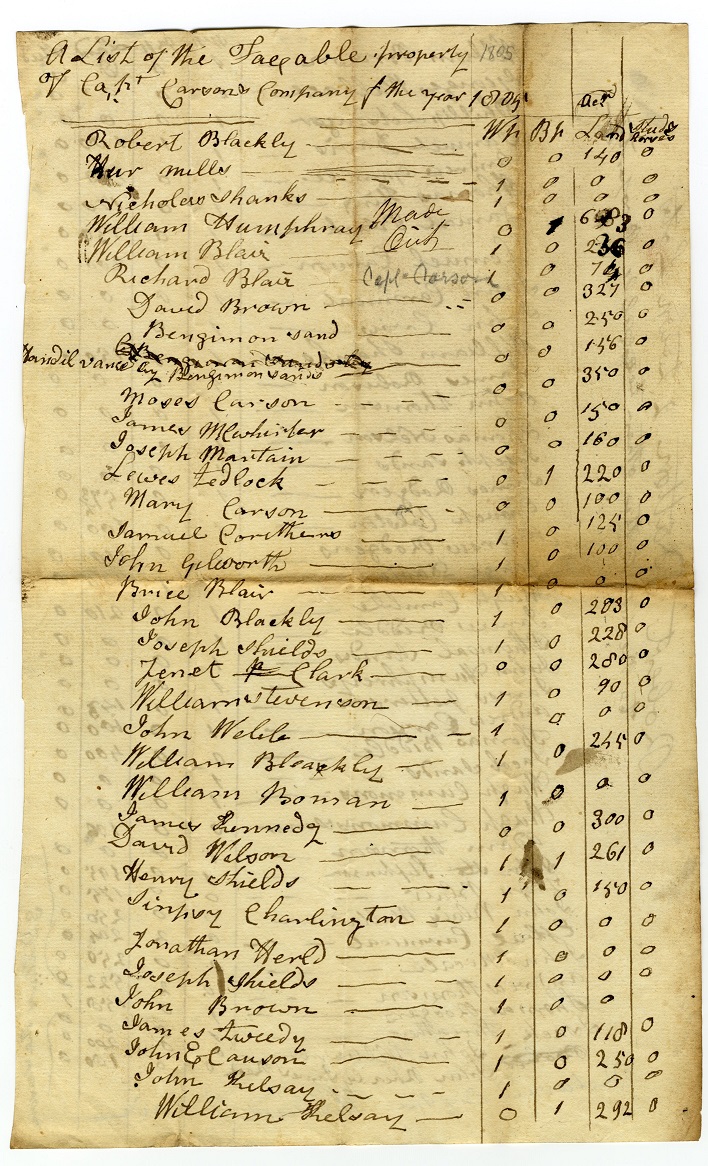 A List of the Taxable property 1805
of Capt Carsons Company f the year 1804
Wp Bp Acr Land Studs Horses
Robert Blackly 0 0 140 0
Hur mills 1 0 0 0
Nicholas Shanks 1 0 0 0
William Humphray Made 0 1 683 0
William Blair Out 1 0 236 0
Richard Blair Capt Carson 0 74 0
David Brown 0 0 327 0
Bengimon sand 0 0 250 0
Vandil vance by Bengimon sands 0 0 156 0
Moses Carson 0 0 350 0
James McWhirter 0 0 150 0
Joseph Martain 0 0 160 0
Lewes Tedlock 0 1 220 0
Mary Carson 0 0 100 0
Samuel Corithers 1 0 125 0
John Gilworth 1 0 100 0
Brice Blair 1 0 0 0
John Blackly 1 0 203 0
Joseph Shields 1 0 228 0
Jenet Clark 0 0 280 0
William Stevenson 1 0 90 0
John Webb 1 0 0 0
William Bleackly 1 0 245 0
William Boman 1 0 0 0
James Kennedy 0 0 300 0
David Wilson 1 1 261 0
Henry Shields 1 0 150 0
Charlington 1 0 0 0
Jonathan Herld 1 0 0 0
Joseph Shields 1 0 0 0
John Brown 1 0 0
James Tweedy 1 0 118 0
John Clauson 1 0 250 0
John Kelsay 1 0 0 0
William Kelsay 0 1 292 0